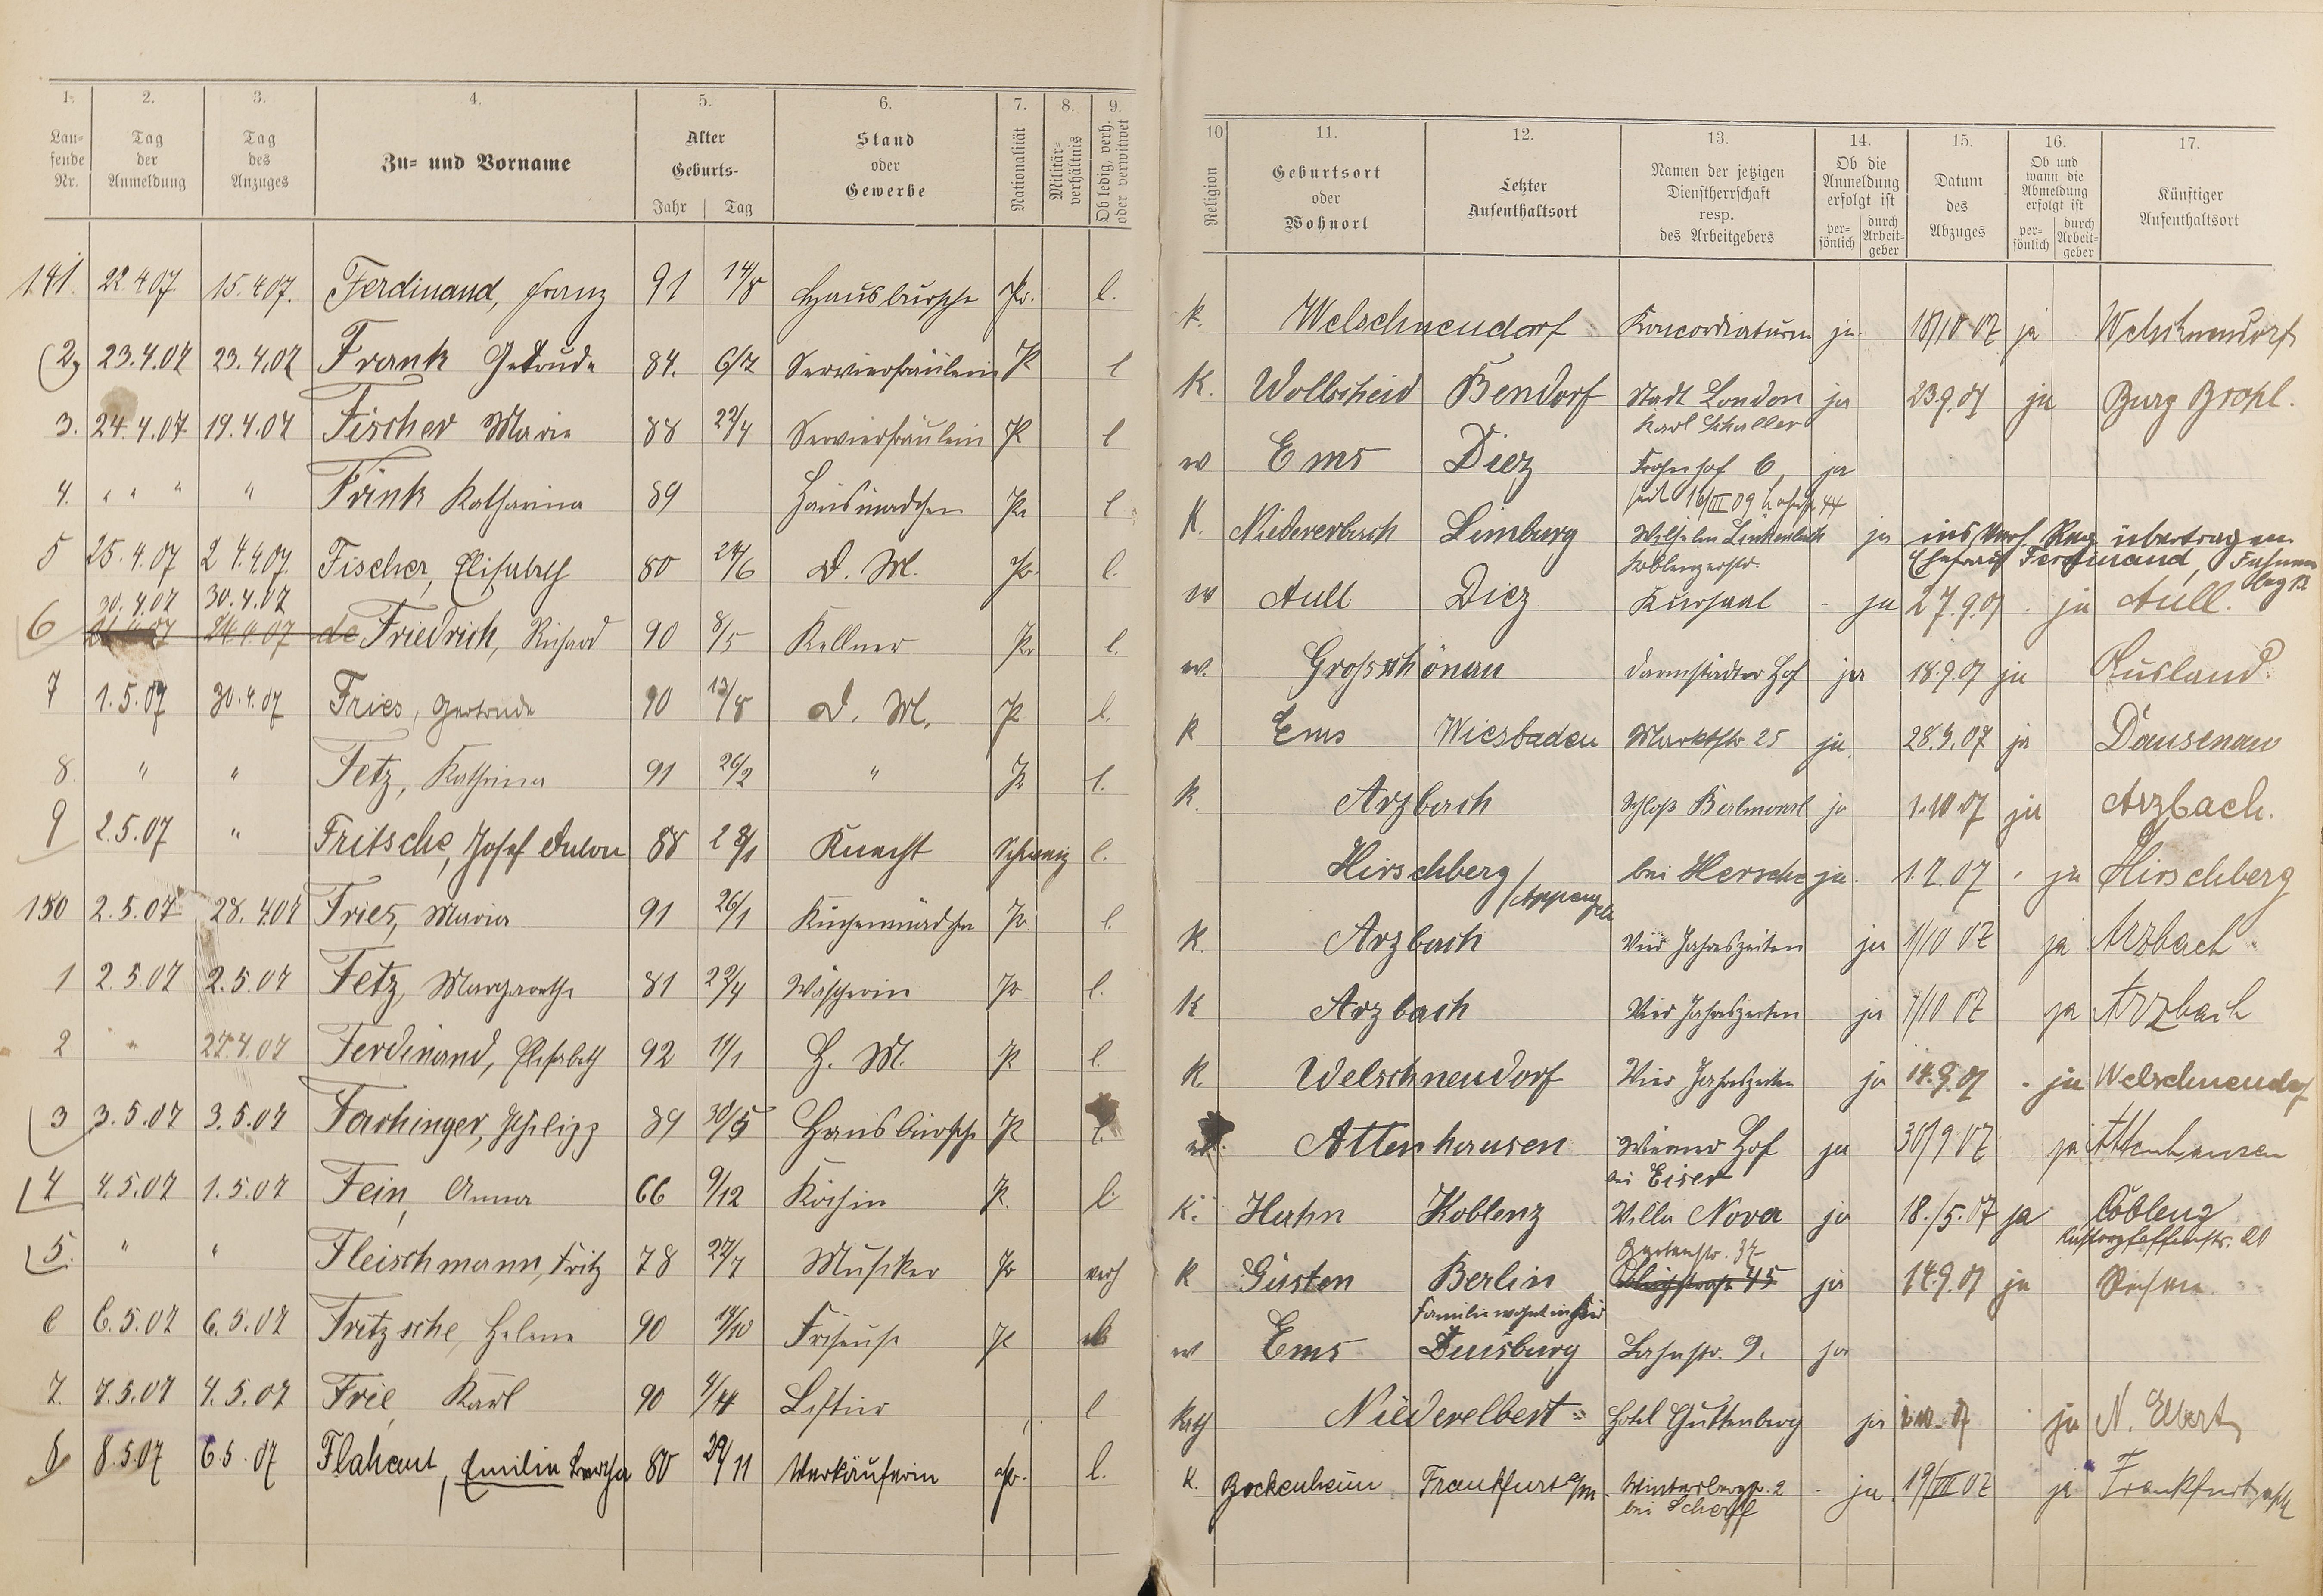 1. 2. 3. 4. 5. 6. 7. 8. 9.
Laufende Nr. Tag der Anmeldung Tag des Anzuges Zu- und Vorname Alter Geburts- Jahr Tag Stand oder Gewerbe Nationalität Militär-verhältnis Ob ledig, verh. oder verwitwet
141 22.4.07 15.4.07. Ferdinand, Franz 91 14/8 Hausbursche Pr. l.
2 23.4.07 23.4.07 Frank Getrude 84. 6/7 Servierfräulein P l
3. 24.4.07 19.4.07 Fischer Marie 88 22/4 Servierfräulein P l
4. " " " " Frink Katharina 89 Hausmädchen Pr l
5 25.4.07 24.4.07 Fischer, Elisabeth 80 24/6 D. M. Pr. l.
30.4.07 30.4.07
6 24.4.07 de Friedrich, Richard 90 8/5 Kellner Pr l.
7 1.5.07 30.4.07 Fries, Gertrude 90 13/8 D. M. P l.
8. " " Fetz, Kathrina 91 26/2 " P l.
9 2.5.07 " Fritsche, Josef Anton 88 28/1 Knecht Schweiz l.
150 2.5.07 28.4.07 Fries, Maria 91 26/1 Küchenmädchen Pr l.
1 2.5.07 2.5.07 Fetz, Margarethe 81 22/4 Wäscherin Pr l.
2 " 27.4.07 Ferdinand, Elisabeth 92 11/1 H. M. P l.
3 3.5.07 3.5.07 Fachinger, Philipp 89 30/5 Hausbursche P l.
4 4.5.07 1.5.07 Fein, Anna 66 9/12 Köchin P. l.
5. " " Fleischmann, Fritz 78 27/7 Musiker Pr verh
6 6.5.07 6.5.07 Fritzsche, Helene 90 18/10 Friseuse P
7. 7.5.07 4.5.07 Frie, Karl 90 4/4 Liftier l
8 8.5.07 6.5.07 Flahaut, Emilie Bertha 80 29/11 Verkäuferin Pr. l.
10 11. 12. 13. 14. 15. 16. 17.
Religion Geburtsort oder Wohnort Letzter Aufenthaltsort Namen der jetzigen Dienstherrschaft resp. des Arbeitgebers Ob die Anmeldung erfolgt ist per-sönlich durch Arbeit-geber Datum des Abzuges Ob und wann die Abmeldung erfolgt ist per-sönlich durch Arbeit-geber Künftiger Aufenthaltsort
k. Welschneudorf Konkordiaturm ja. 18/10 07 ja Welschneudorf
K. Wollscheid Bendorf Stadt London ja 23.9.07 ja Burg Brohl.
Karl Schaller
w Ems Diez Fronhof 6 ja
seit 16/III 09
K. Niedererbach Limburg Wilhelm Linkenbach ja ins Verh. Reg übertragen
Koblenzerstr. Ehefrau Ferdinand,
w Aull Diez Kursaal - ja 27.9.07 . ja Aull.
w. Grossschönau Darmstädter Hof ja 18.9.07 ja Ausland.
K Ems Wiesbaden Marktstr 25 ja. 28.9.07 ja Dausenau
K. Arzbach Schloß Balmoral ja 1.10.07 ja Arzbach.
Hirschberg bei Hersche ja. 1.7.07 . ja Hirschberg
/Appenzell
K. Arzbach Vier Jahreszeiten ja 1/10 07 ja Arzbach
K Arzbach Vier Jahreszeiten ja 7/10 07 ja Arzbach
K. Welschneudorf Vier Jahreszeiten ja 14.9.07 . ja Welschneudorf
Attenhausen Wiener Hof ja 30/9 07 ja Attenhausen
bei Eiser
K. Hahn Koblenz Villa Nova ja 18./5.07 ja Coblenz
Kastorpfaffenstr. 20
Gartenstr. 37
K Güsten Berlin 45 ja 14.9.07 ja
Familie wohnt in hier
w Ems Duisburg Lahnstr. 9. ja
Kath Niederelbert Hotel Guttenberg ja 2.10.07 ja N. Elbert
K. Bockenheim Frankfurt a/m. Winterbergstr. 2 - ja 19/VII 07 ja Frankfurt
bei Scherff